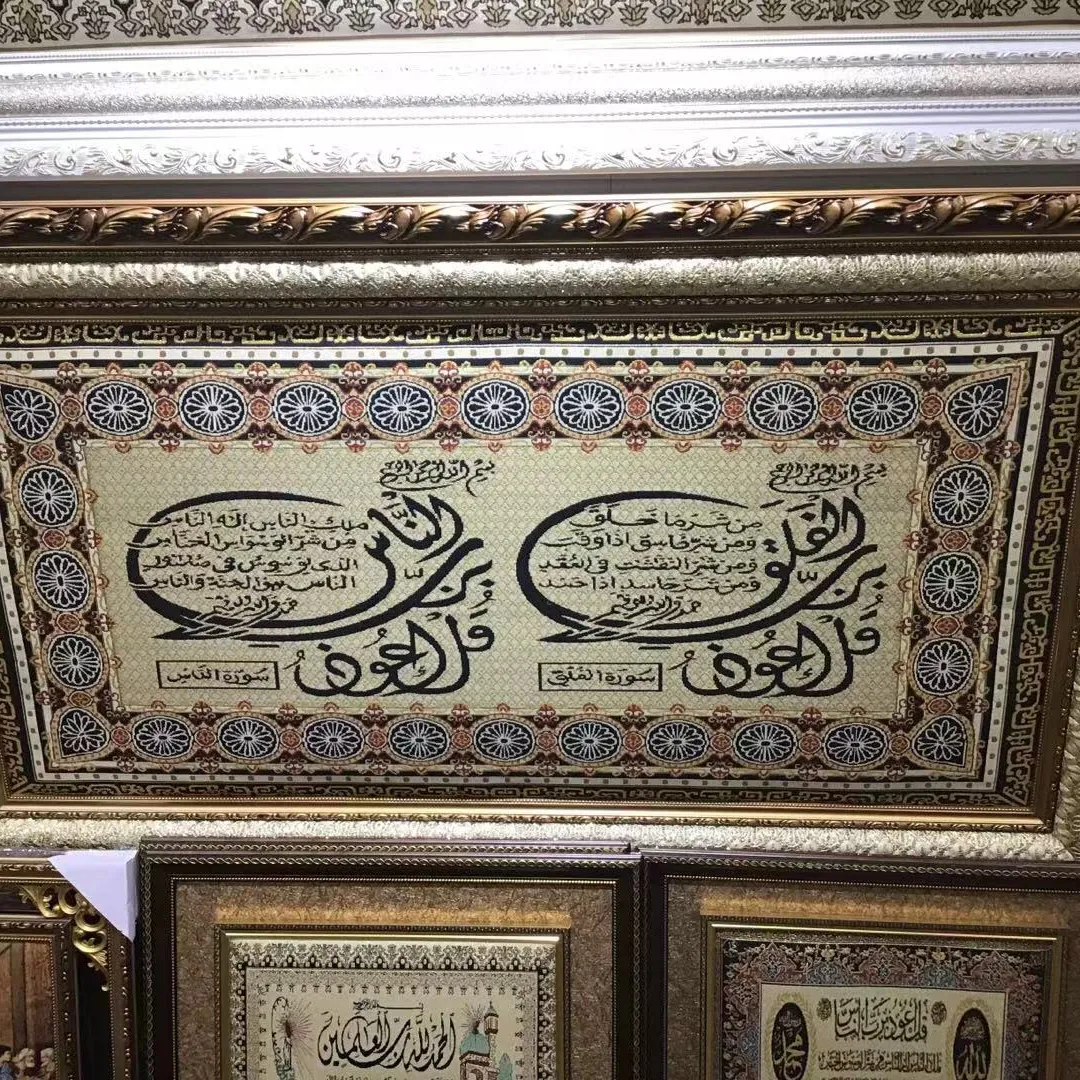 بسم الله الرحمن الرحيم
قل أعوذ برب الفلق
من شر ما خلق
ومن شر غاسق اذا وقب
ومن شر النفثت في العقد
ومن شر حاسد اذا حسد
صدق الله العظيم
سورة الفلق
بسم الله الرحمن الرحيم
قل أعوذ برب الناس
ملك الناس اله الناس
من شر الوسواس الخناس
الذى يوسوس في صدور
الناس من الجنة والناس
صدق الله العظيم
سورة الناس
الحمد لله رب العالمين
قل أعوذ برب الناس
محمد
الله